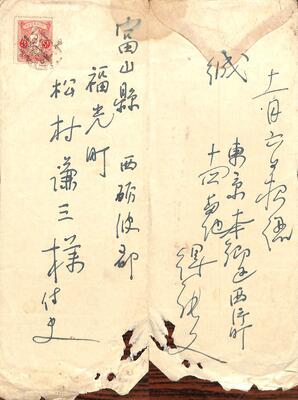 富山縣 西砺波郡
福光町
松村謙三様
侍史
十一月六日
緘
東京本郷区西片町
十四番地